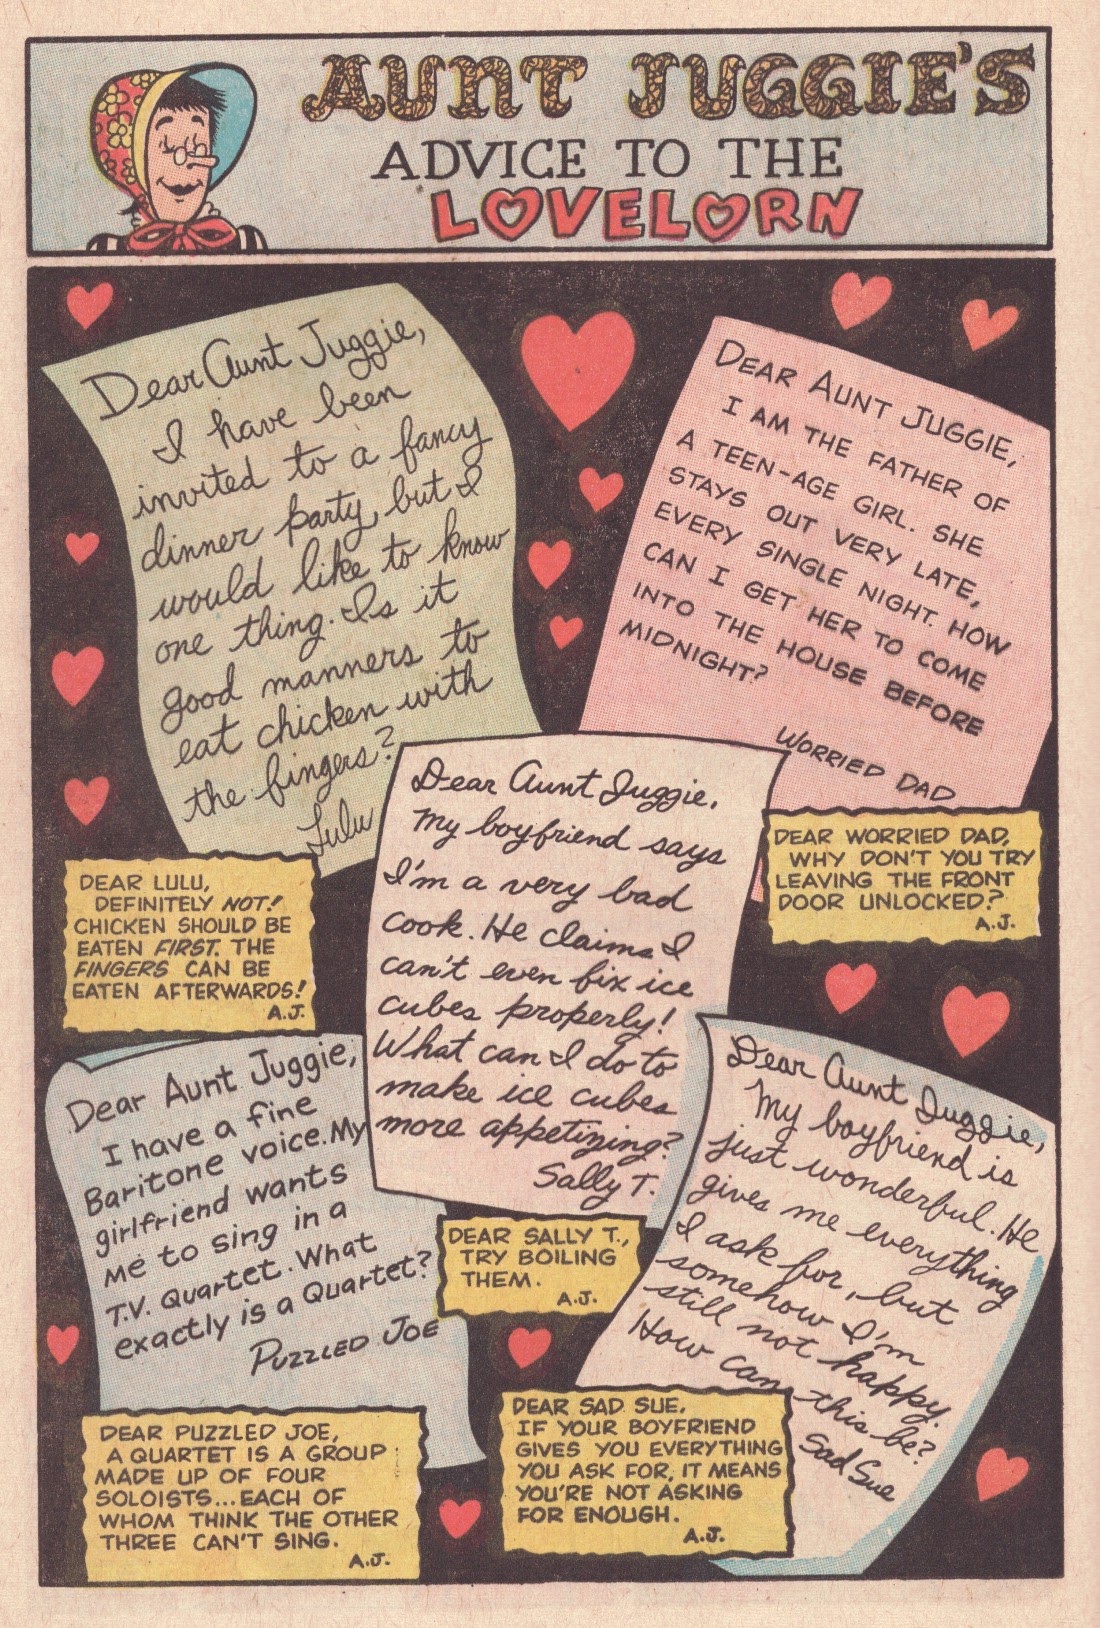 AUNT JUGGIE'S
ADVICE TO THE
LOVELORN
Dear Aunt Juggie,
I have been
invited to a fancy
dinner party, but I
would like to know
one thing. Is it
good manners to
eat chicken with
the fingers?
Lulu
DEAR LULU,
DEFINITELY NOT!
CHICKEN SHOULD BE
EATEN FIRST. THE
FINGERS CAN BE
EATEN AFTERWARDS!
A.J.
DEAR AUNT JUGGIE,
I AM THE FATHER OF
A TEEN-AGE GIRL. SHE
STAYS OUT VERY LATE,
EVERY SINGLE NIGHT. HOW
CAN I GET HER TO COME
INTO THE HOUSE BEFORE
MIDNIGHT?
WORRIED DAD
DEAR WORRIED DAD,
WHY DON'T YOU TRY
LEAVING THE FRONT
DOOR UNLOCKED?
A.J.
Dear Aunt Juggie,
My boyfriend says
I'm a very bad
cook. He claims I
can't even fix ice
cubes properly!
What can I do to
make ice cubes
more appetizing?
Sally T.
DEAR SALLY T.,
TRY BOILING
THEM.
A.J.
Dear Aunt Juggie,
I have a fine
Baritone voice. My
girlfriend wants
me to sing in a
T.V. Quartet. What
exactly is a Quartet?
PUZZLED JOE
DEAR PUZZLED JOE,
A QUARTET IS A GROUP
MADE UP OF FOUR
SOLOISTS... EACH OF
WHOM THINK THE OTHER
THREE CAN'T SING.
A.J.
Dear Aunt Juggie,
My boyfriend is
just wonderful. He
gives me everything
I ask for, but
somehow I'm
still not happy.
How can this be?
Sad Sue
DEAR SAD SUE,
IF YOUR BOYFRIEND
GIVES YOU EVERYTHING
YOU ASK FOR, IT MEANS
YOU'RE NOT ASKING
FOR ENOUGH.
A.J.